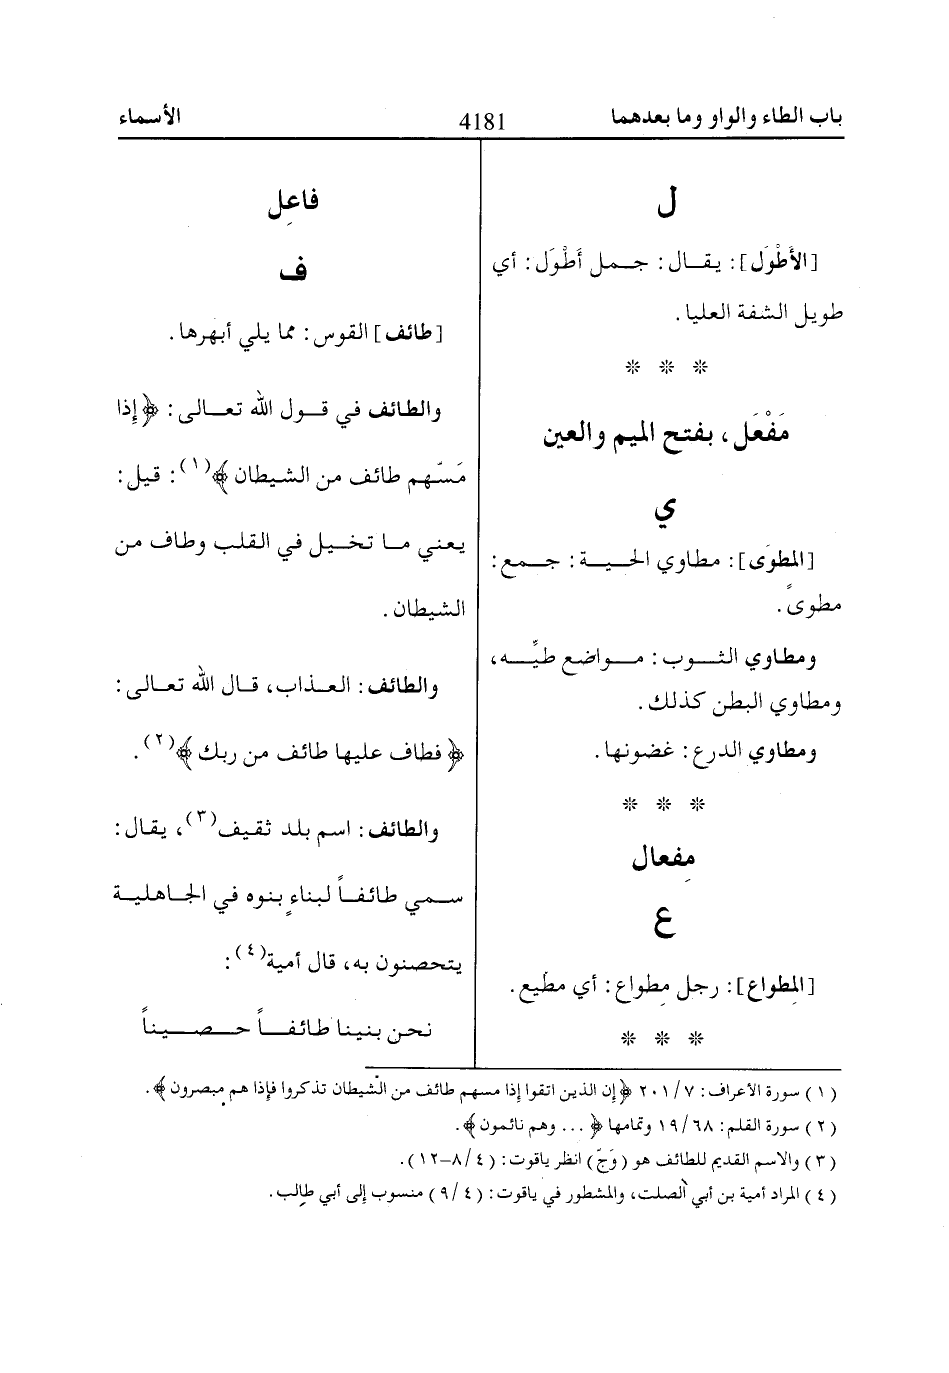 باب الطاء والواو وما بعدهما
4181
الأسماء
ل
[الأَطْوَل]: يقال: جمل أَطْوَل: أي
طويل الشفة العليا.
* * *
مَفْعَل، بفتح الميم والعين
ي
[المَطْوَى]: مطاوي الحية: جمع:
مطوىً.
ومطاوي الثوب: مواضع طيِّه،
ومطاوي البطن كذلك.
ومطاوي الدرع: غضونها.
* * *
مِفعال
ع
[المِطواع]: رجل مِطواع: أي مطيع.
* * *
فاعِل
ف
[طائف] القوس: مما يلي أبهرها.
والطائف في قول الله تعالى: ﴿إذا
مَسَّهم طائف من الشيطان﴾(١): قيل:
يعني ما تخيل في القلب وطاف من
الشيطان.
والطائف: العذاب، قال الله تعالى:
﴿فطاف عليها طائف من ربك﴾(٢).
والطائف: اسم بلد ثقيف(٣)، يقال:
سمي طائفاً لبناءٍ بنوه في الجاهلية
يتحصنون به، قال أمية(٤):
نحن بنينا طائفاً حصيناً
(١) سورة الأعراف: ٧/ ٢٠١ ﴿إن الذين اتقوا إذا مسهم طائف من الشيطان تذكروا فإذا هم مبصرون﴾.
(٢) سورة القلم: ٦٨/ ١٩ وتمامها ﴿... وهم نائمون﴾.
(٣) والاسم القديم للطائف هو (وَجّ) انظر ياقوت: (٤/ ٨-١٢).
(٤) المراد أمية بن أبي الصلت، والمشطور في ياقوت: (٤/ ٩) منسوب إلى أبي طالب.